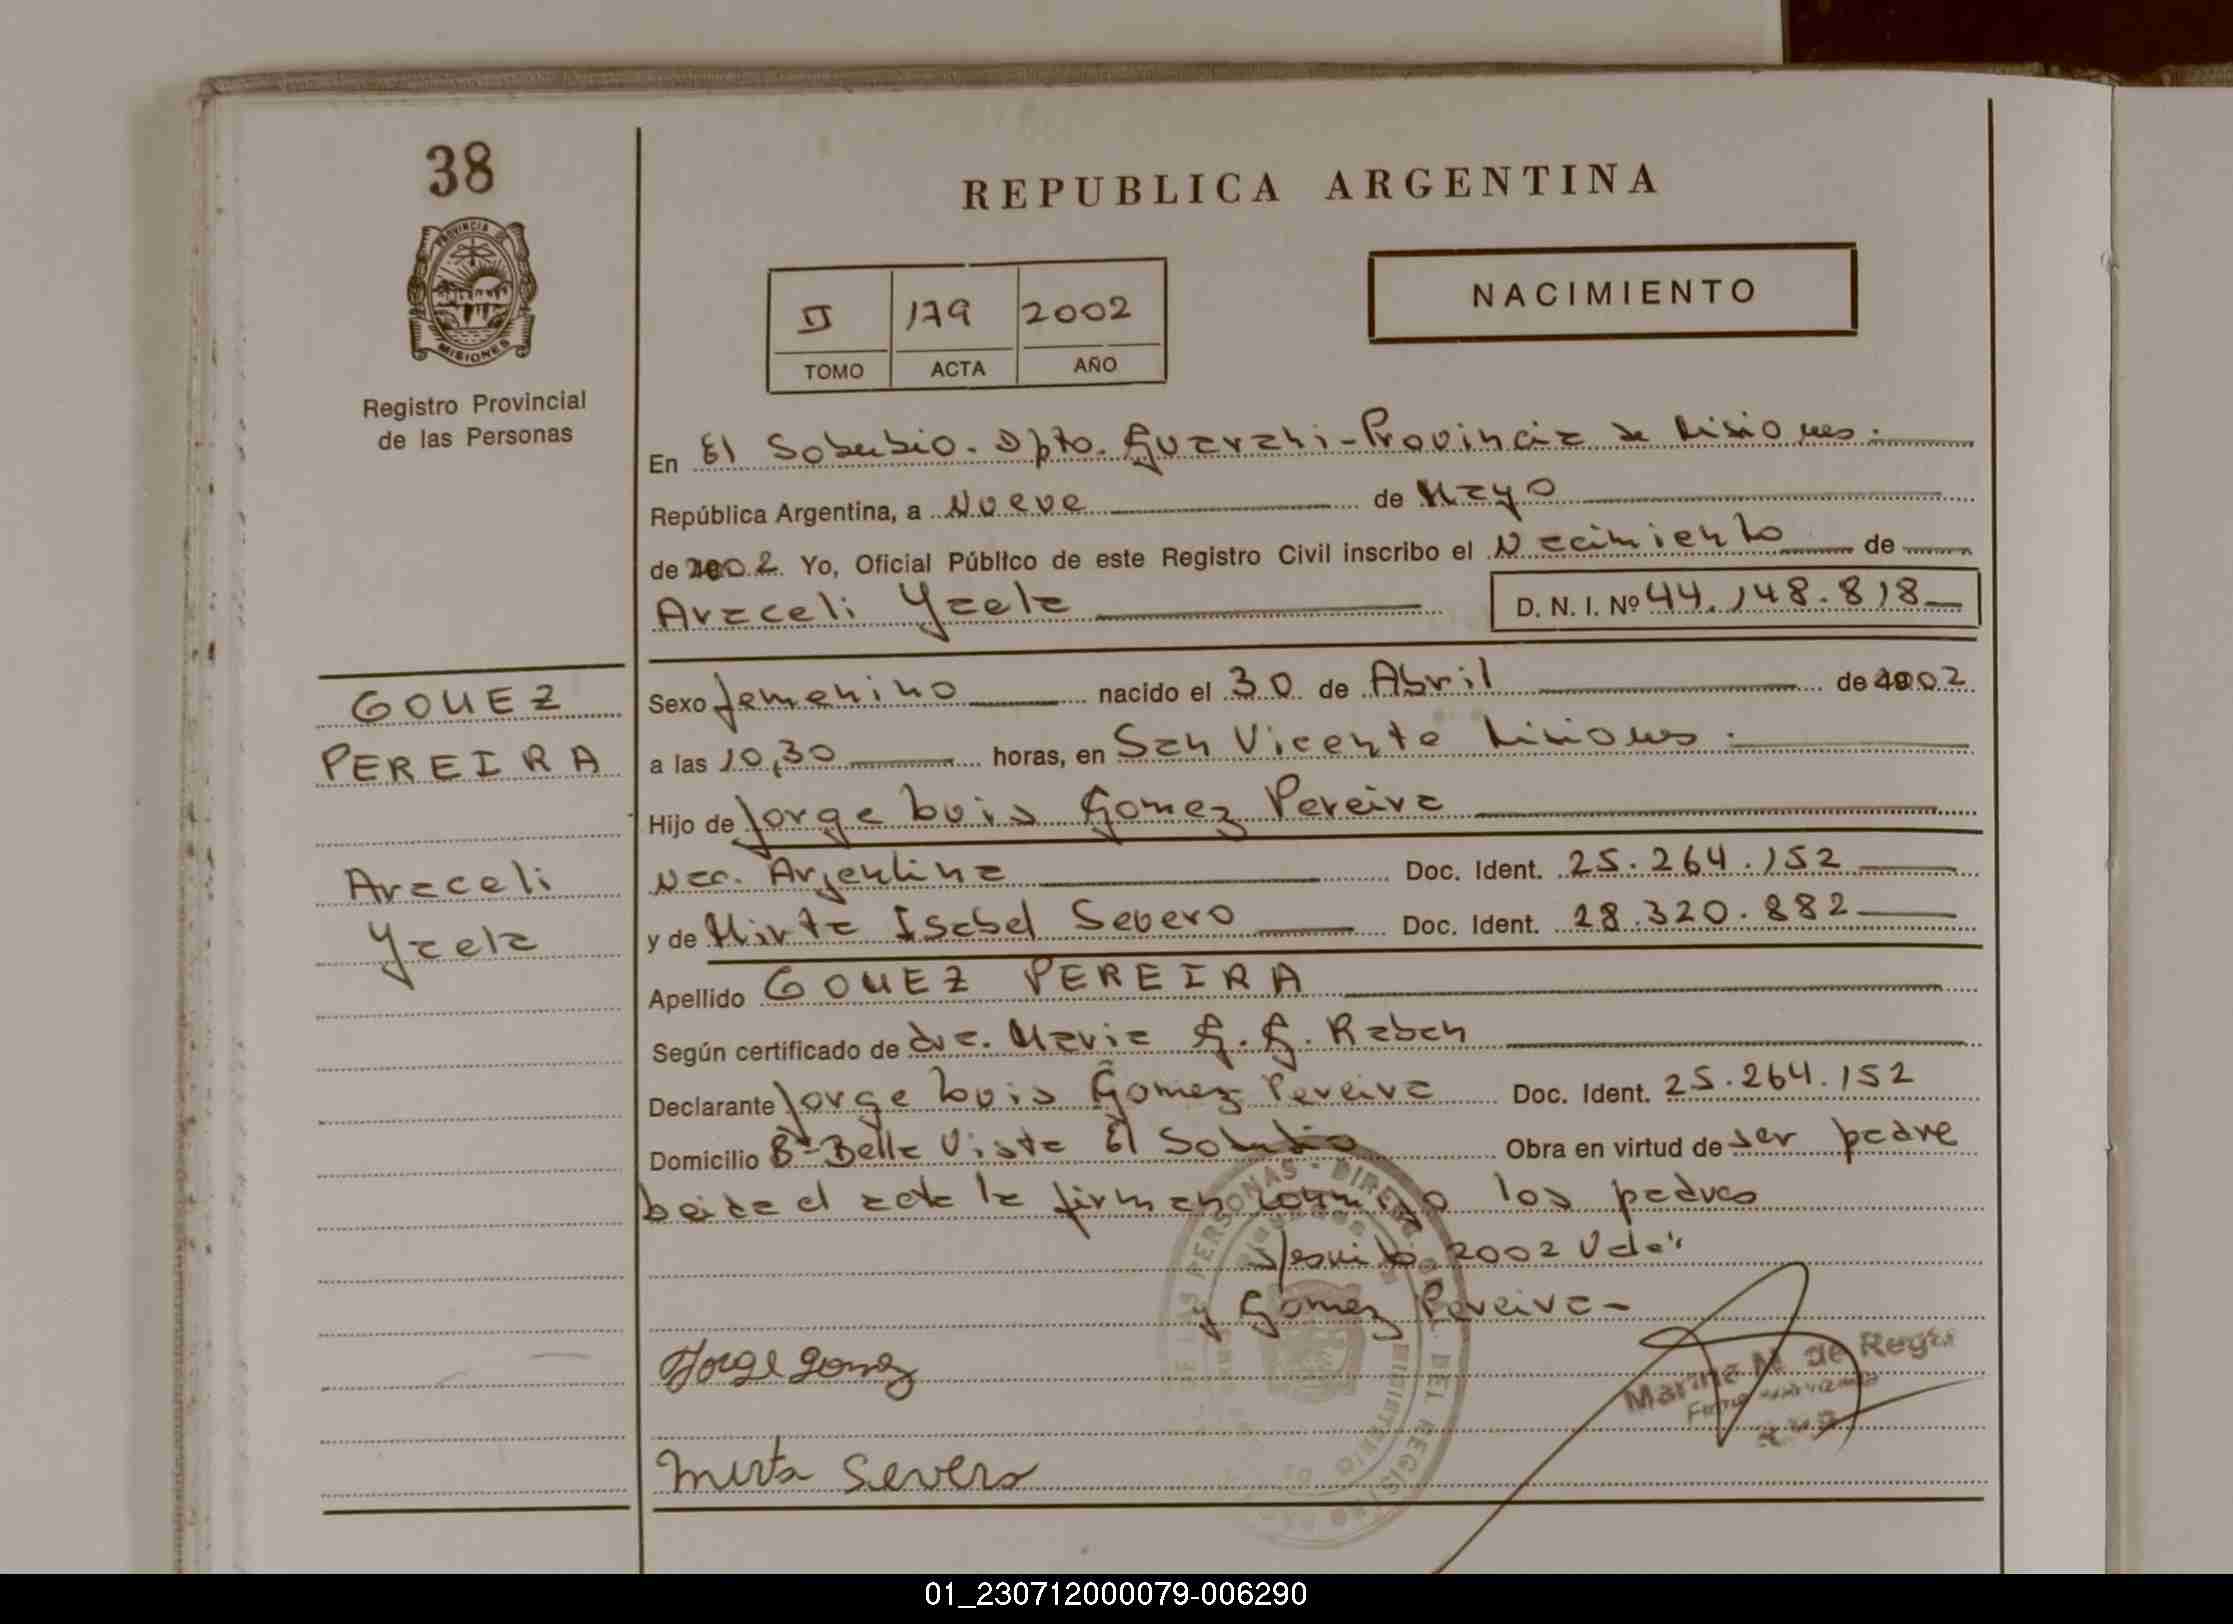 38
PROVINCIA DE
MISIONES
Registro Provincial
de las Personas
REPUBLICA ARGENTINA
NACIMIENTO
II 179 2002
TOMO ACTA AÑO
En El Soberbio. Dpto. Guarani-Provincia de Misiones.
República Argentina, a Nueve de Mayo
de 2002 Yo, Oficial Público de este Registro Civil inscribo el Nacimiento de
Araceli Yaela D. N. I. Nº 44.148.818
GOMEZ
PEREIRA
Araceli
Yaela
Sexo femenino nacido el 30 de Abril de 2002
a las 10,30 horas, en San Vicente Misiones.
Hijo de Jorge Luis Gomez Pereira
Nac. Argentina Doc. Ident. 25.264.152
y de Mirta Isabel Severo Doc. Ident. 28.320.882
Apellido GOMEZ PEREIRA
Según certificado de dra. Maria G. G. Raben
Declarante Jorge Luis Gomez Pereira Doc. Ident. 25.264.152
Domicilio Bº Bella Vista El Soberbio Obra en virtud de ser padre
Leida el acta la firman conmigo los padres
2002 Vale
y Gomez Pereira-
Jorge Gomez
Marina N. de Reg
Mirta Severo
01_230712000079-006290